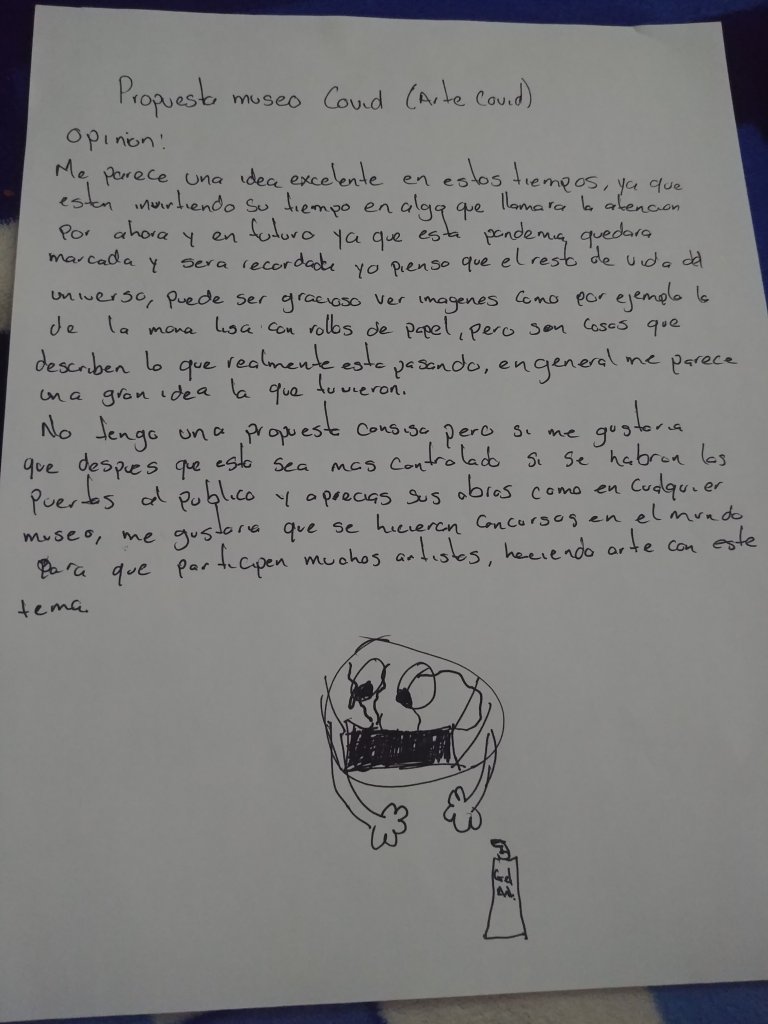 Propuesta museo Covid (Arte Covid)
Opinion:
Me parece una idea excelente en estos tiempos, ya que
estan invirtiendo su tiempo en algo que llamara la atencion
por ahora y en futuro ya que esta pandemia quedara
marcada y sera recordada yo pienso que el resto de vida del
universo, puede ser gracioso ver imagenes como por ejemplo la
de la mona lisa con rollos de papel, pero son cosas que
describen lo que realmente esta pasando, en general me parece
una gran idea la que tuvieron.
No tengo una propuesta consisa pero si me gustaria
que despues que esto sea mas controlado si se habran las
puertas al publico y aprecias sus obras como en cualquier
museo, me gustaria que se hicieran concursos en el mundo
para que participen muchos artistas, haciendo arte con este
tema.